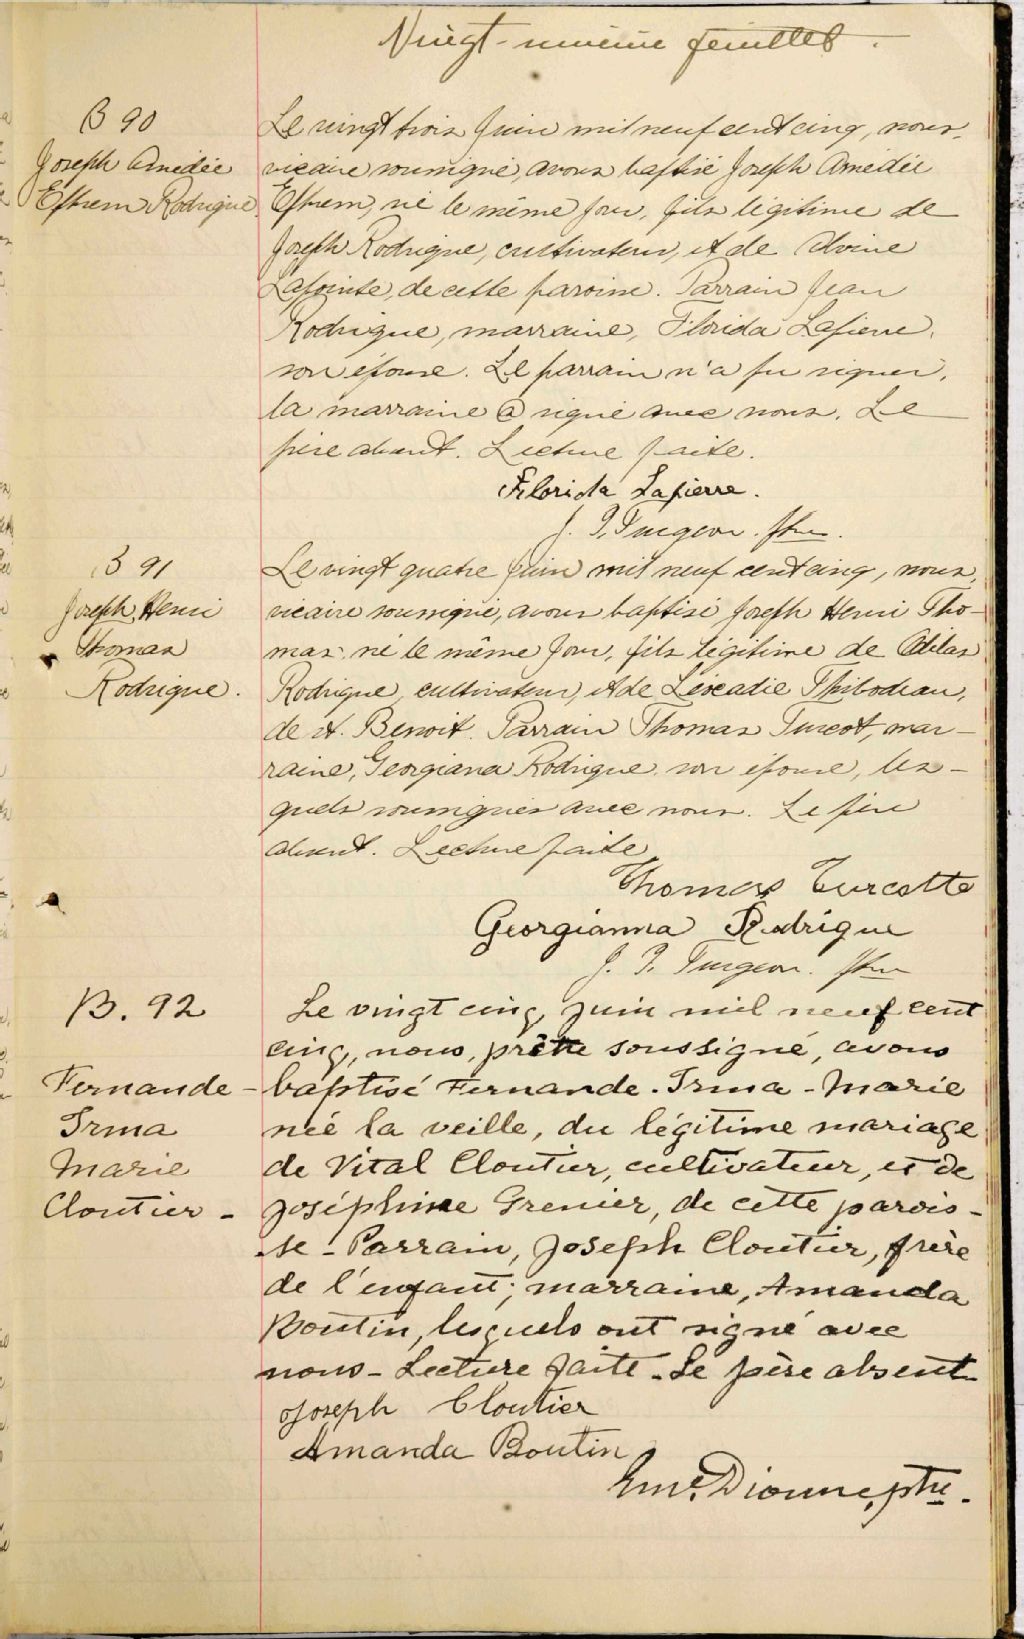 Vingt-neuvième feuillet.
B 90
Joseph Amédée
Ephrem Rodrigue
Le vingt trois Juin mil neuf cent cinq, nous,
vicaire soussigné, avons baptisé Joseph Amédée
Ephrem, né le même jour, fils légitime de
Joseph Rodrigue, cultivateur, et de
Lapointe, de cette paroisse. Parrain Jean
Rodrigue, marraine, Florida Lapierre,
son épouse. Le parrain n'a pu signer,
la marraine a signé avec nous. Le
père absent. Lecture faite.
Florida Lapierre.
J. P. Turgeon. Ptre.
B 91
Joseph Henri
Thomas
Rodrigue.
Le vingt quatre Juin mil neuf cent cinq, nous,
vicaire soussigné, avons baptisé Joseph Henri Tho-
mas, né le même jour, fils légitime de
Rodrigue, cultivateur, et de Léocadie Thibodeau,
de St. Benoit. Parrain Thomas Turcot, mar-
raine, Georgiana Rodrigue son épouse, les-
quels soussignés avec nous. Le père
absent. Lecture faite
Thomas Turcotte
Georgianna Rodrigue
J. P. Turgeon. Ptre
B. 92
Fernande-
Irma
Marie
Cloutier-
Le vingt cinq Juin mil neuf cent
cinq, nous, prêtre soussigné, avons
baptisé Fernande-Irma-Marie
née la veille, du légitime mariage
de Vital Cloutier, cultivateur, et de
Joséphine Grenier, de cette parois-
se- Parrain, Joseph Cloutier, frère
de l'enfant; marraine, Amanda
Boutin, lesquels ont signé avec
nous- Lecture faite-Le père absent-
Joseph Cloutier
Amanda Boutin
Dionne, ptre.